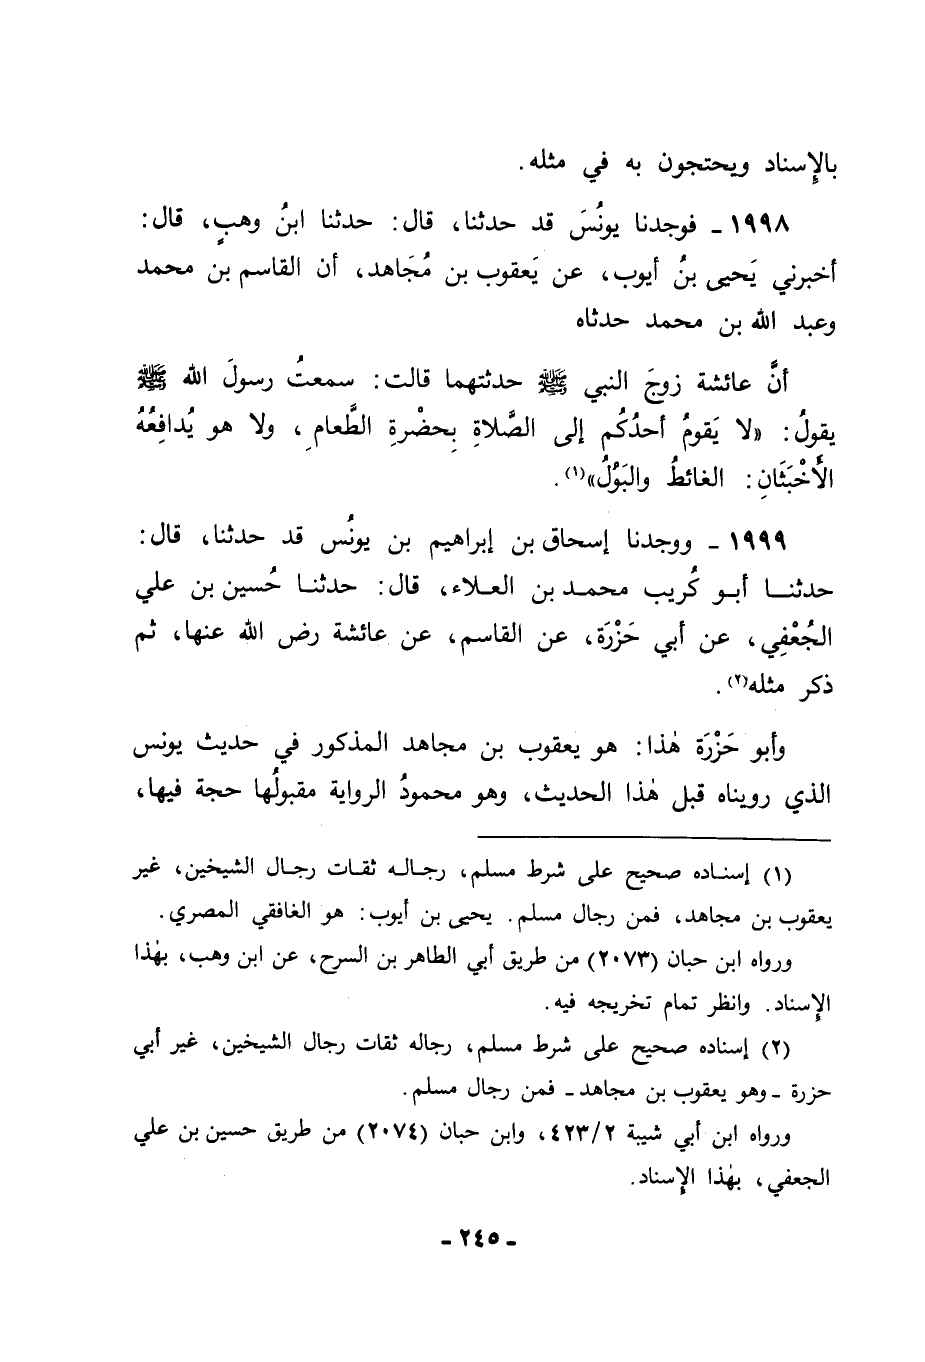 بالإِسناد ويحتجون به في مثله.
١٩٩٨ ـ فوجدنا يونُسَ قد حدثنا، قال: حدثنا ابنُ وهبٍ، قال:
أخبرني يَحيى بنُ أيوب، عن يَعقوب بن مُجَاهد، أن القاسم بن محمد
وعبد الله بن محمد حدثاه
أنَّ عائشة زوجَ النبي ﷺ حدثتهما قالت: سمعتُ رسولَ الله ﷺ
يقولُ: «لا يَقومُ أحدُكُم إلى الصَّلاةِ بِحضْرةِ الطَّعامِ، ولا هو يُدافِعُهُ
الأَخْبَثَانِ: الغائطُ والبَوْلُ»(١).
١٩٩٩ ـ ووجدنا إسحاق بن إبراهيم بن يونُس قد حدثنا، قال:
حدثنا أبو كُريب محمد بن العلاء، قال: حدثنا حُسين بن علي
الجُعْفِي، عن أبي حَزْرَة، عن القاسم، عن عائشة رض الله عنها، ثم
ذكر مثله(٢).
وأبو حَزْرَة هٰذا: هو يعقوب بن مجاهد المذكور في حديث يونس
الذي رويناه قبل هٰذا الحديث، وهو محمودُ الرواية مقبولُها حجة فيها،
(١) إسناده صحيح على شرط مسلم، رجاله ثقات رجال الشيخين، غير
يعقوب بن مجاهد، فمن رجال مسلم. يحيى بن أيوب: هو الغافقي المصري.
ورواه ابن حبان (٢٠٧٣) من طريق أبي الطاهر بن السرح، عن ابن وهب، بهٰذا
الإِسناد. وانظر تمام تخريجه فيه.
(٢) إسناده صحيح على شرط مسلم، رجاله ثقات رجال الشيخين، غير أبي
حزرة ـ وهو يعقوب بن مجاهد ـ فمن رجال مسلم.
ورواه ابن أبي شيبة ٤٢٣/٢، وابن حبان (٢٠٧٤) من طريق حسين بن علي
الجعفي، بهٰذا الإِسناد.
ـ ٢٤٥ ـ